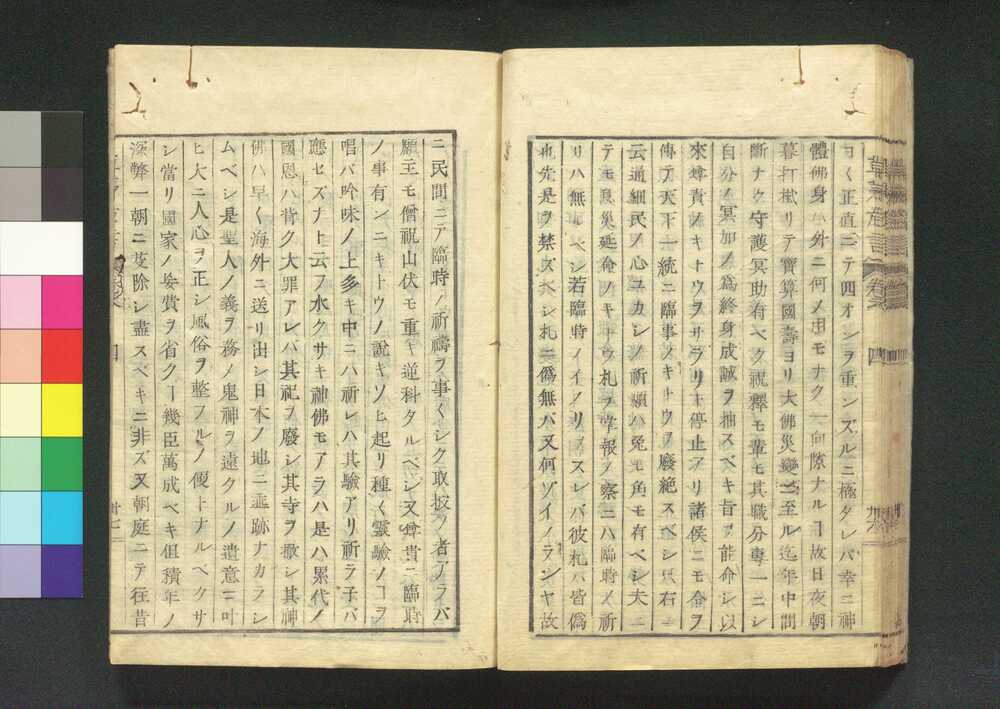 ヨく正直ニテ四オンヲ重ンズルニ極タレバ幸ニ神
體佛身ハ外ニ何ノ用モナク一向隙ナルヨ故日夜朝
暮打槌リテ寶算國壽ヨリ大佛災變ニ至ル迄年中間
斷ナク守護冥助有ベク祝釋モ輩モ其職分專一ニシ
自分ノ冥加ノ爲終身成誠ヲ抽スベキ旨ヲ能命シ以
來尊責ノキトウヲサラリト停止アリ諸侯ニモ令ヲ
傳ヘテ天下一統ニ臨事ノキトウヲ廢絶スベシ只右ニ
云通細民ノ心ユカシノ祈願ハ兎モ角モ有ベシ夫ニ
テモ良災延命ノキトウ札ヲ 報ノ察ニハ臨時ノ祈
リハ無ルベシ若臨時ノイノリヲスレバ彼札ハ皆僞
也先是ヲ禁ズベシ札ニ僞無バ又何ゾイノランヤ故
草茅危言 卷 四
ニ民間ニテ臨時ノ祈禱ヲ事〱シク取扱フ者アラバ
願主モ僧祝山伏モ重キ道科タルベシ又尊貴ニ臨時
ノ事有ンニキトウノ說キソヒ起リ種〱靈驗ノヿヲ
唱バ吟味ノ上多キ中ニハ祈レハ其驗アリ祈ラ子バ
應セズナト云フ水クサキ神佛モアラハ是ハ累代ノ
國恩ハ背ク大罪アレバ其祀ヲ廢シ其寺ヲ撤シ其神
佛ハ早く海外ニ送リ出シ日本ノ地ニ垂跡ナカラシ
ムベシ是聖人ノ義ヲ務メ鬼神ヲ遠クルノ遺意ニ叶
ヒ大ニ人心ヲ正シ風俗ヲ整フルノ便トナルベクサ
シ當リ國家ノ妄費ヲ省クヿ幾臣萬成ベキ但積年ノ
深弊一朝ニ芟除シ盡スベキニ非ズ又朝庭ニテ往昔